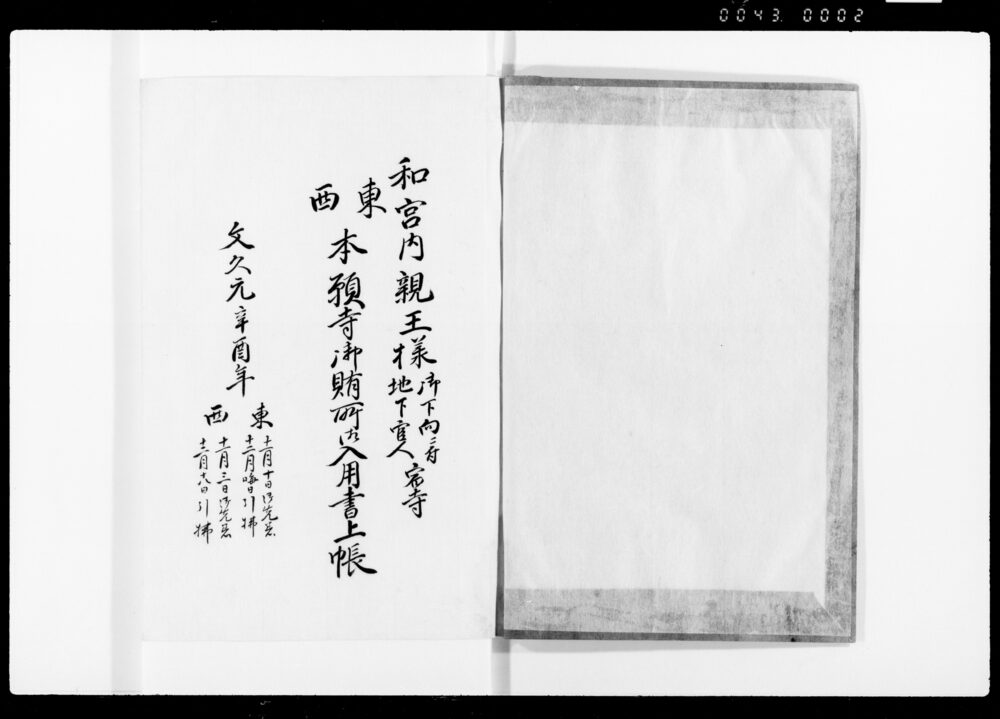 0043 0002
和宮内親王様御下向ニ付
地下官人宿寺
東
西
本願寺御賄所御入用書上帳
文久元辛酉年
東
十一月十日
十二月晦日引拂
西
十一月三日
十二月十八日引拂